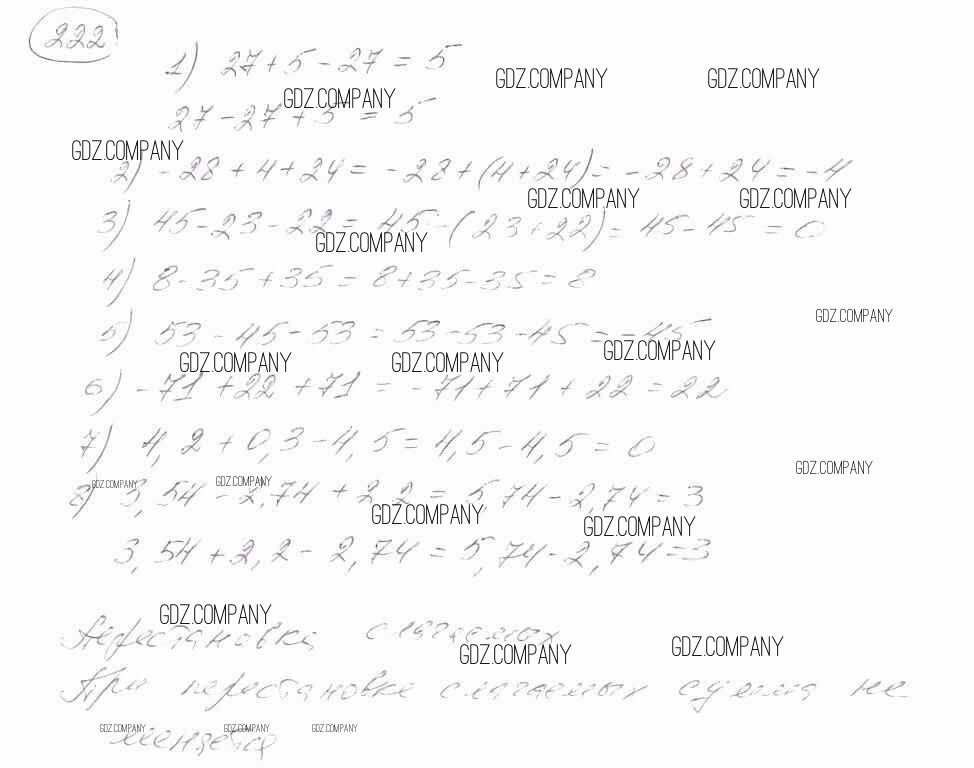 222
1) 27 + 5 - 27 = 5
GDZ.COMPANY GDZ.COMPANY
GDZ.COMPANY
27 - 27 + 5 = 5
GDZ.COMPANY
2) - 28 + 4 + 24 = - 28 + (4 + 24) = - 28 + 24 = - 4
GDZ.COMPANY GDZ.COMPANY
3) 45 - 23 - 22 = 45 - (23 + 22) = 45 - 45 = 0
GDZ.COMPANY
4) 8 - 35 + 35 = 8 + 35 - 35 = 8
GDZ.COMPANY
5) 53 - 45 - 53 = 53 - 53 - 45 = - 45
GDZ.COMPANY GDZ.COMPANY GDZ.COMPANY
6) - 71 + 22 + 71 = - 71 + 71 + 22 = 22
7) 4,2 + 0,3 - 4,5 = 4,5 - 4,5 = 0
GDZ.COMPANY
GDZ.COMPANY GDZ.COMPANY
8) 3,54 - 2,74 + 2,2 = 5,74 - 2,74 = 3
GDZ.COMPANY GDZ.COMPANY
3,54 + 2,2 - 2,74 = 5,74 - 2,74 = 3
GDZ.COMPANY
Перестановка слагаемых
GDZ.COMPANY GDZ.COMPANY
При перестановке слагаемых сумма не
GDZ.COMPANY GDZ.COMPANY GDZ.COMPANY
меняется